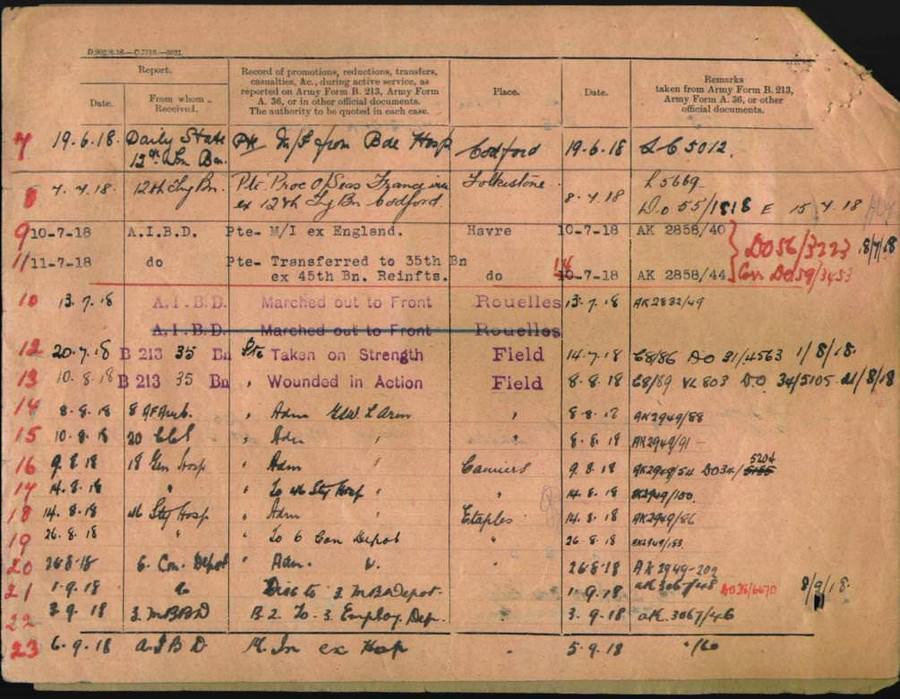 Report.
Date.
From whom Received.
Record of promotions, reductions, transfers, casualties, &c., during active service, as reported on Army Form B. 213, Army Form A. 36, or in other official documents. The authority to be quoted in each case.
Place.
Date.
Remarks taken from Army Form B. 213, Army Form A. 36, or other official documents.
7 19.6.18. Daily State Pte M/I from Bde Hosp Codford 19.6.18 5012.
12th Bn.
8 4.18. 12th Trg Bn. Pte Proc O/Seas France via Folkestone 8.4.18 5669
ex 12th Trg Bn Codford. D.O 55/1818 E 15.4.18
9 10-7-18 A.I.B.D. Pte- M/I ex England. Havre 10-7-18 AK 2858/40 DO56/3223 18/7/18
11 11-7-18 do Pte- Transferred to 35th Bn
ex 45th Bn. Reinfts. do 10-7-18 14 AK 2858/44 Corr DO59/3453
10 13.7.18 A.I.B.D. Marched out to Front Rouelles 13.7.18 AK2832/49
A.I.B.D. Marched out to Front Rouelles
12 20.7.18 B 213 35 Bn Pte Taken on Strength Field 14.7.18 C8/86 DO 31/4563 1/8/18.
13 10.8.18 B 213 35 Bn " Wounded in Action Field 8.8.18 C8/89 VL 803 D.O 34/5105 21/8/18
14 8.8.18 8 AF Amb. " Adm GSW L Arm " 8.8.18 AK2949/88
15 10.8.18 20 CCS " Adm " " 8.8.18 AK2949/91
16 9.8.18 18 Gen Hosp " Adm Camiers 9.8.18 AK2949/54 DO34/ 5204
17 14.8.18 " " To 46 Sty Hosp " " 14.8.18 AK2949/100.
18 14.8.18 46 Sty Hosp " Adm " Etaples 14.8.18 AK2949/86
19 26.8.18 " " To 6 Con Depot " 26.8.18 AK2949/153
20 26.8.18 6. Con. Depot " Adm. 26.8.18 AK 2949-202
21 1.9.18 do Disc to 3 MBADepot. 1.9.18 AK 3067/ DO36/6670 8/9/18.
22 3.9.18 3 MBAD B2. To 3 Employ. Dep. 3.9.18 AK. 3067/46
23 6.9.18 A.I.B.D M. In ex Hosp " 5.9.18 "/60